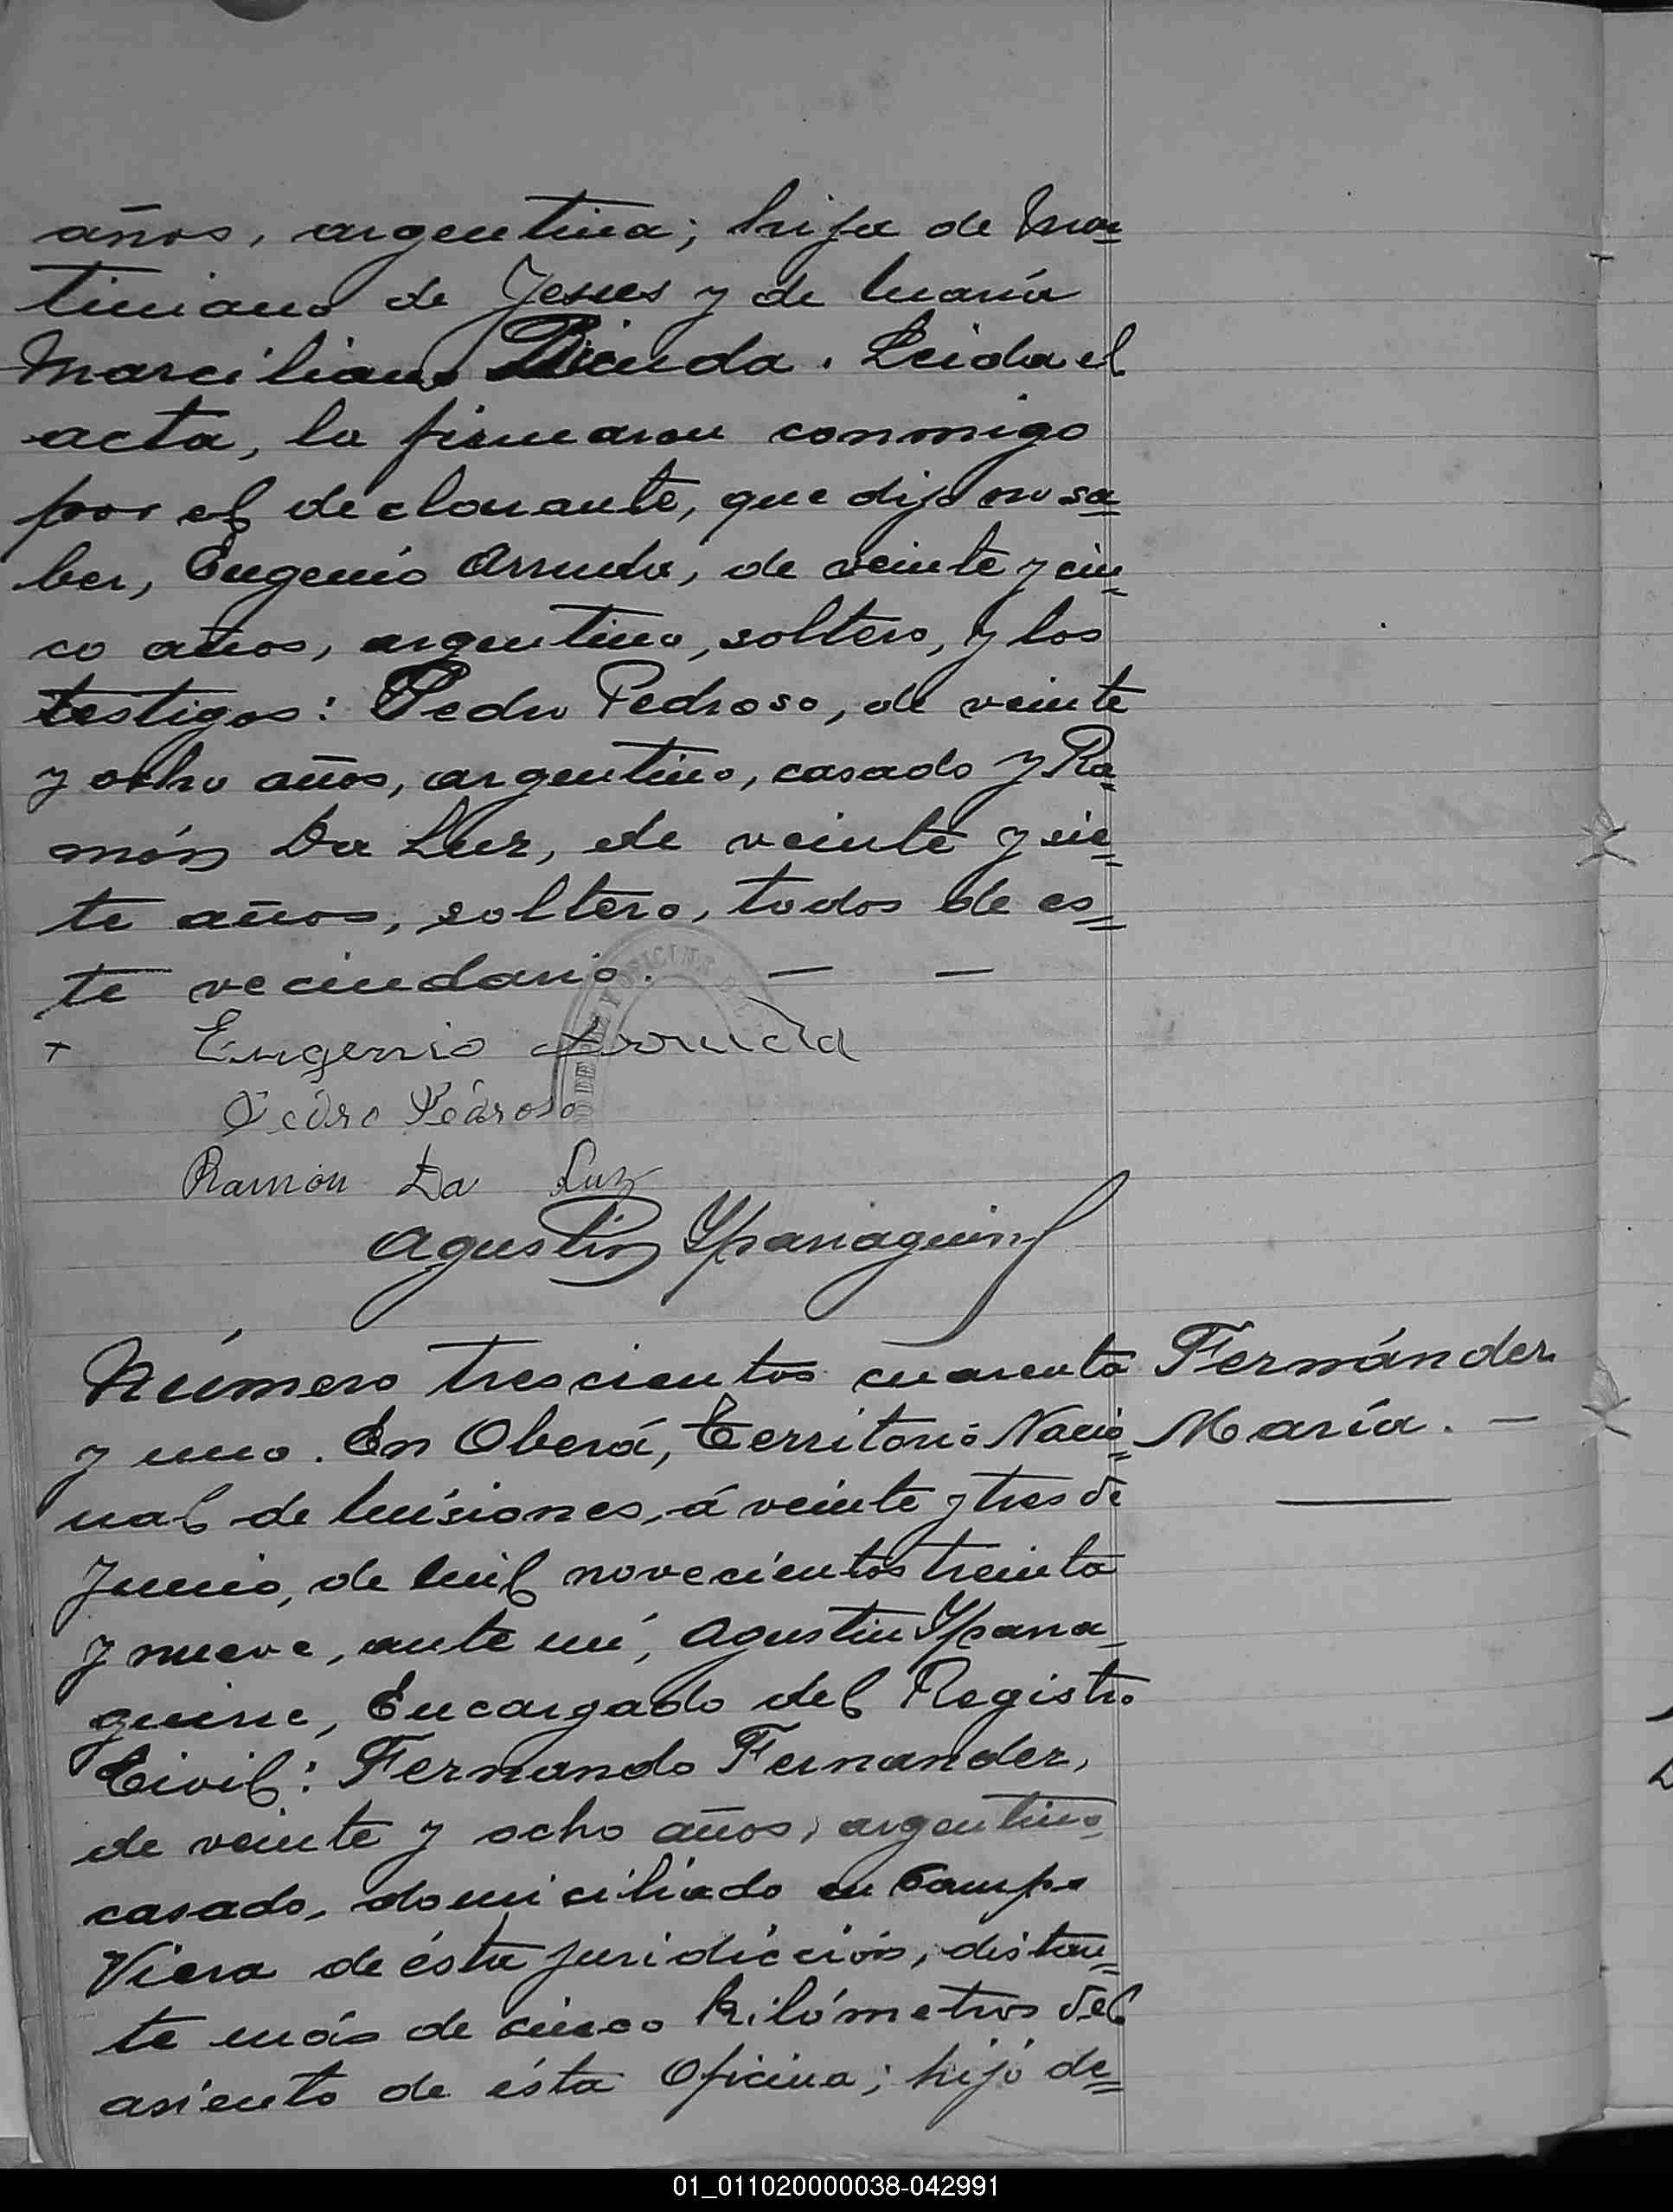 años, argentina; hija de Mar=
timiano de Jesus y de María
Marciliana Bienda. Leida el
acta, la firmaron conmigo
por el declarante, que dijo no sa=
ber, Eugenio Arruda, de veinte y cin=
co años, argentino, soltero, y los
testigos: Pedro Pedroso, de veinte
y ocho años, argentino, casado y Ra=
món Da Luz, de veinte y sie=
te años, soltero, todos de es=
te vecindario. — —
+ Eugenio Arruda
Pedro Pedroso
Ramón Da Luz
Agustin Yparraguirre
Número trescientos cuarenta
y uno. En Oberá, Territorio Nacio=
nal de Misiones, á veinte y tres de
Junio, de mil novecientos treinta
y nueve, ante mí, Agustin Yparra=
guirre, Encargado del Registro
Civil: Fernando Fernandez,
de veinte y ocho años, argentino
casado, domiciliado en Campo
Viera de ésta juridicción, distan=
te más de cinco kilómetros del
asiento de ésta Oficina; hijo de=
Fernández
María. —
01_011020000038-042991